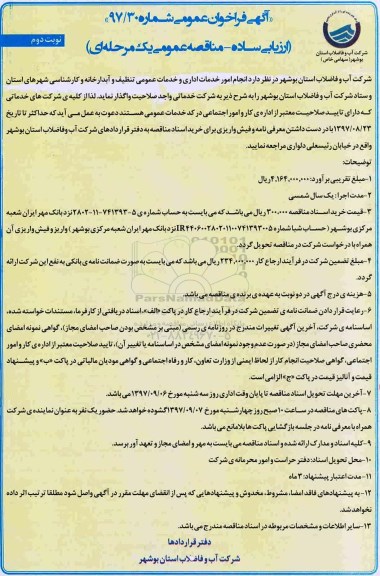 «آگهی فراخوان عمومی شماره ۹۷/۳۰»
(ارزیابی ساده - مناقصه عمومی یک مرحله‌ای)
نوبت دوم
شرکت آب و فاضلاب استان
بوشهر (سهامی خاص)
شرکت آب و فاضلاب استان بوشهر در نظر دارد انجام امور خدمات اداری و خدمات عمومی تنظیف و آبدارخانه و کارشناسی شهرهای استان
و ستاد شرکت آب و فاضلاب استان بوشهر را به شرح ذیر به شرکت خدماتی واجد صلاحیت واگذار نماید. لذا از کلیه ی شرکت های خدماتی
که دارای تایید صلاحیت معتبر از اداره ی کار و امور اجتماعی در کد خدمات عمومی هستند دعوت به عمل می آید که حداکثر تا تاریخ
۱۳۹۷/۰۸/۲۳ با در دست داشتن معرفی نامه و فیش واریزی برای خرید اسناد مناقصه به دفتر قراردادهای شرکت آب و فاضلاب استان بوشهر
واقع در خیابان رئیسعلی دلواری مراجعه نمایید.
توضیحات:
۱-مبلغ تقریبی برآورد: ۴,۱۶۴,۰۰۰,۰۰۰ ریال
۲-مدت اجرا: یک سال شمسی
۳-قیمت خرید اسناد مناقصه ۳۰۰,۰۰۰ ریال می باشد که می بایست به حساب شماره ی ۵-۷۴۱۳۹۳-۱۱-۲۸۰۲ نزد بانک مهر ایران شعبه
مرکزی بوشهر (حساب شبا شماره IR۴۴۰۶۰۰۲۸۰۲۰۱۱۰۰۷۴۱۳۹۳۰۰۵ نزد بانک مهر ایران شعبه مرکزی بوشهر) واریز و فیش واریزی آن
همراه با درخواست شرکت در مناقصه تحویل گردد.
۴-مبلغ تضمین شرکت در فرآیند ارجاع کار ۲۳۴,۰۰۰,۰۰۰ ریال می باشد که می بایست به صورت ضمانت نامه ی بانکی به نفع این شرکت ارائه
گردد.
۵-هزینه ی درج آگهی در دو نوبت به عهده ی برنده ی مناقصه می باشد.
۶-رعایت قرار دادن ضمانت نامه ی تضمین شرکت در فرآیند ارجاع کار در پاکت «الف»، اسناد دریافتی از کارفرما، مستندات خواسته شده،
اساسنامه ی شرکت، آخرین آگهی تغییرات مندرج در روزنامه ی رسمی (مبنی بر مشخص بودن صاحب امضای مجاز)، گواهی نمونه امضای
محضری صاحب امضای مجاز (در صورت عدم وجود نمونه امضای مشخص در اساسنامه یا تغییر آن)، تایید صلاحیت معتبر از اداره ی کار و امور
اجتماعی، گواهی صلاحیت انجام کار از لحاظ ایمنی از وزارت تعاون، کار و رفاه اجتماعی و گواهی مودیان مالیاتی در پاکت «ب» و پیشنهاد
قیمت و آنالیز قیمت در پاکت «ج» الزامی است.
۷-آخرین مهلت تحویل اسناد مناقصه تا پایان وقت اداری روز سه شنبه مورخ ۱۳۹۷/۰۹/۰۶ می باشد.
۸-پاکت های مناقصه در ساعت ۱۰ صبح روز چهارشنبه مورخ ۱۳۹۷/۰۹/۰۷ گشوده خواهد شد. حضور یک نفر به عنوان نماینده ی شرکت
همراه با معرفی نامه در جلسه بازگشایی پاکت ها بلامانع می باشد.
۹-کلیه اسناد و مدارک ارائه شده و اسناد مناقصه می بایست به مهر و امضای مجاز و تعهد آور برسد.
۱۰-محل تحویل اسناد: دفتر حراست و امور محرمانه ی شرکت
۱۱-مدت اعتبار پیشنهاد: ۳ ماه
۱۲-به پیشنهادهای فاقد امضا، مشروط، مخدوش و پیشنهادهایی که پس از انقضای مهلت مقرر در آگهی واصل شود مطلقا ترتیب اثر داده
نخواهد شد.
۱۳-سایر اطلاعات و مشخصات مربوطه در اسناد مناقصه مندرج می باشد.
دفتر قراردادها
شرکت آب و فاضلاب استان بوشهر